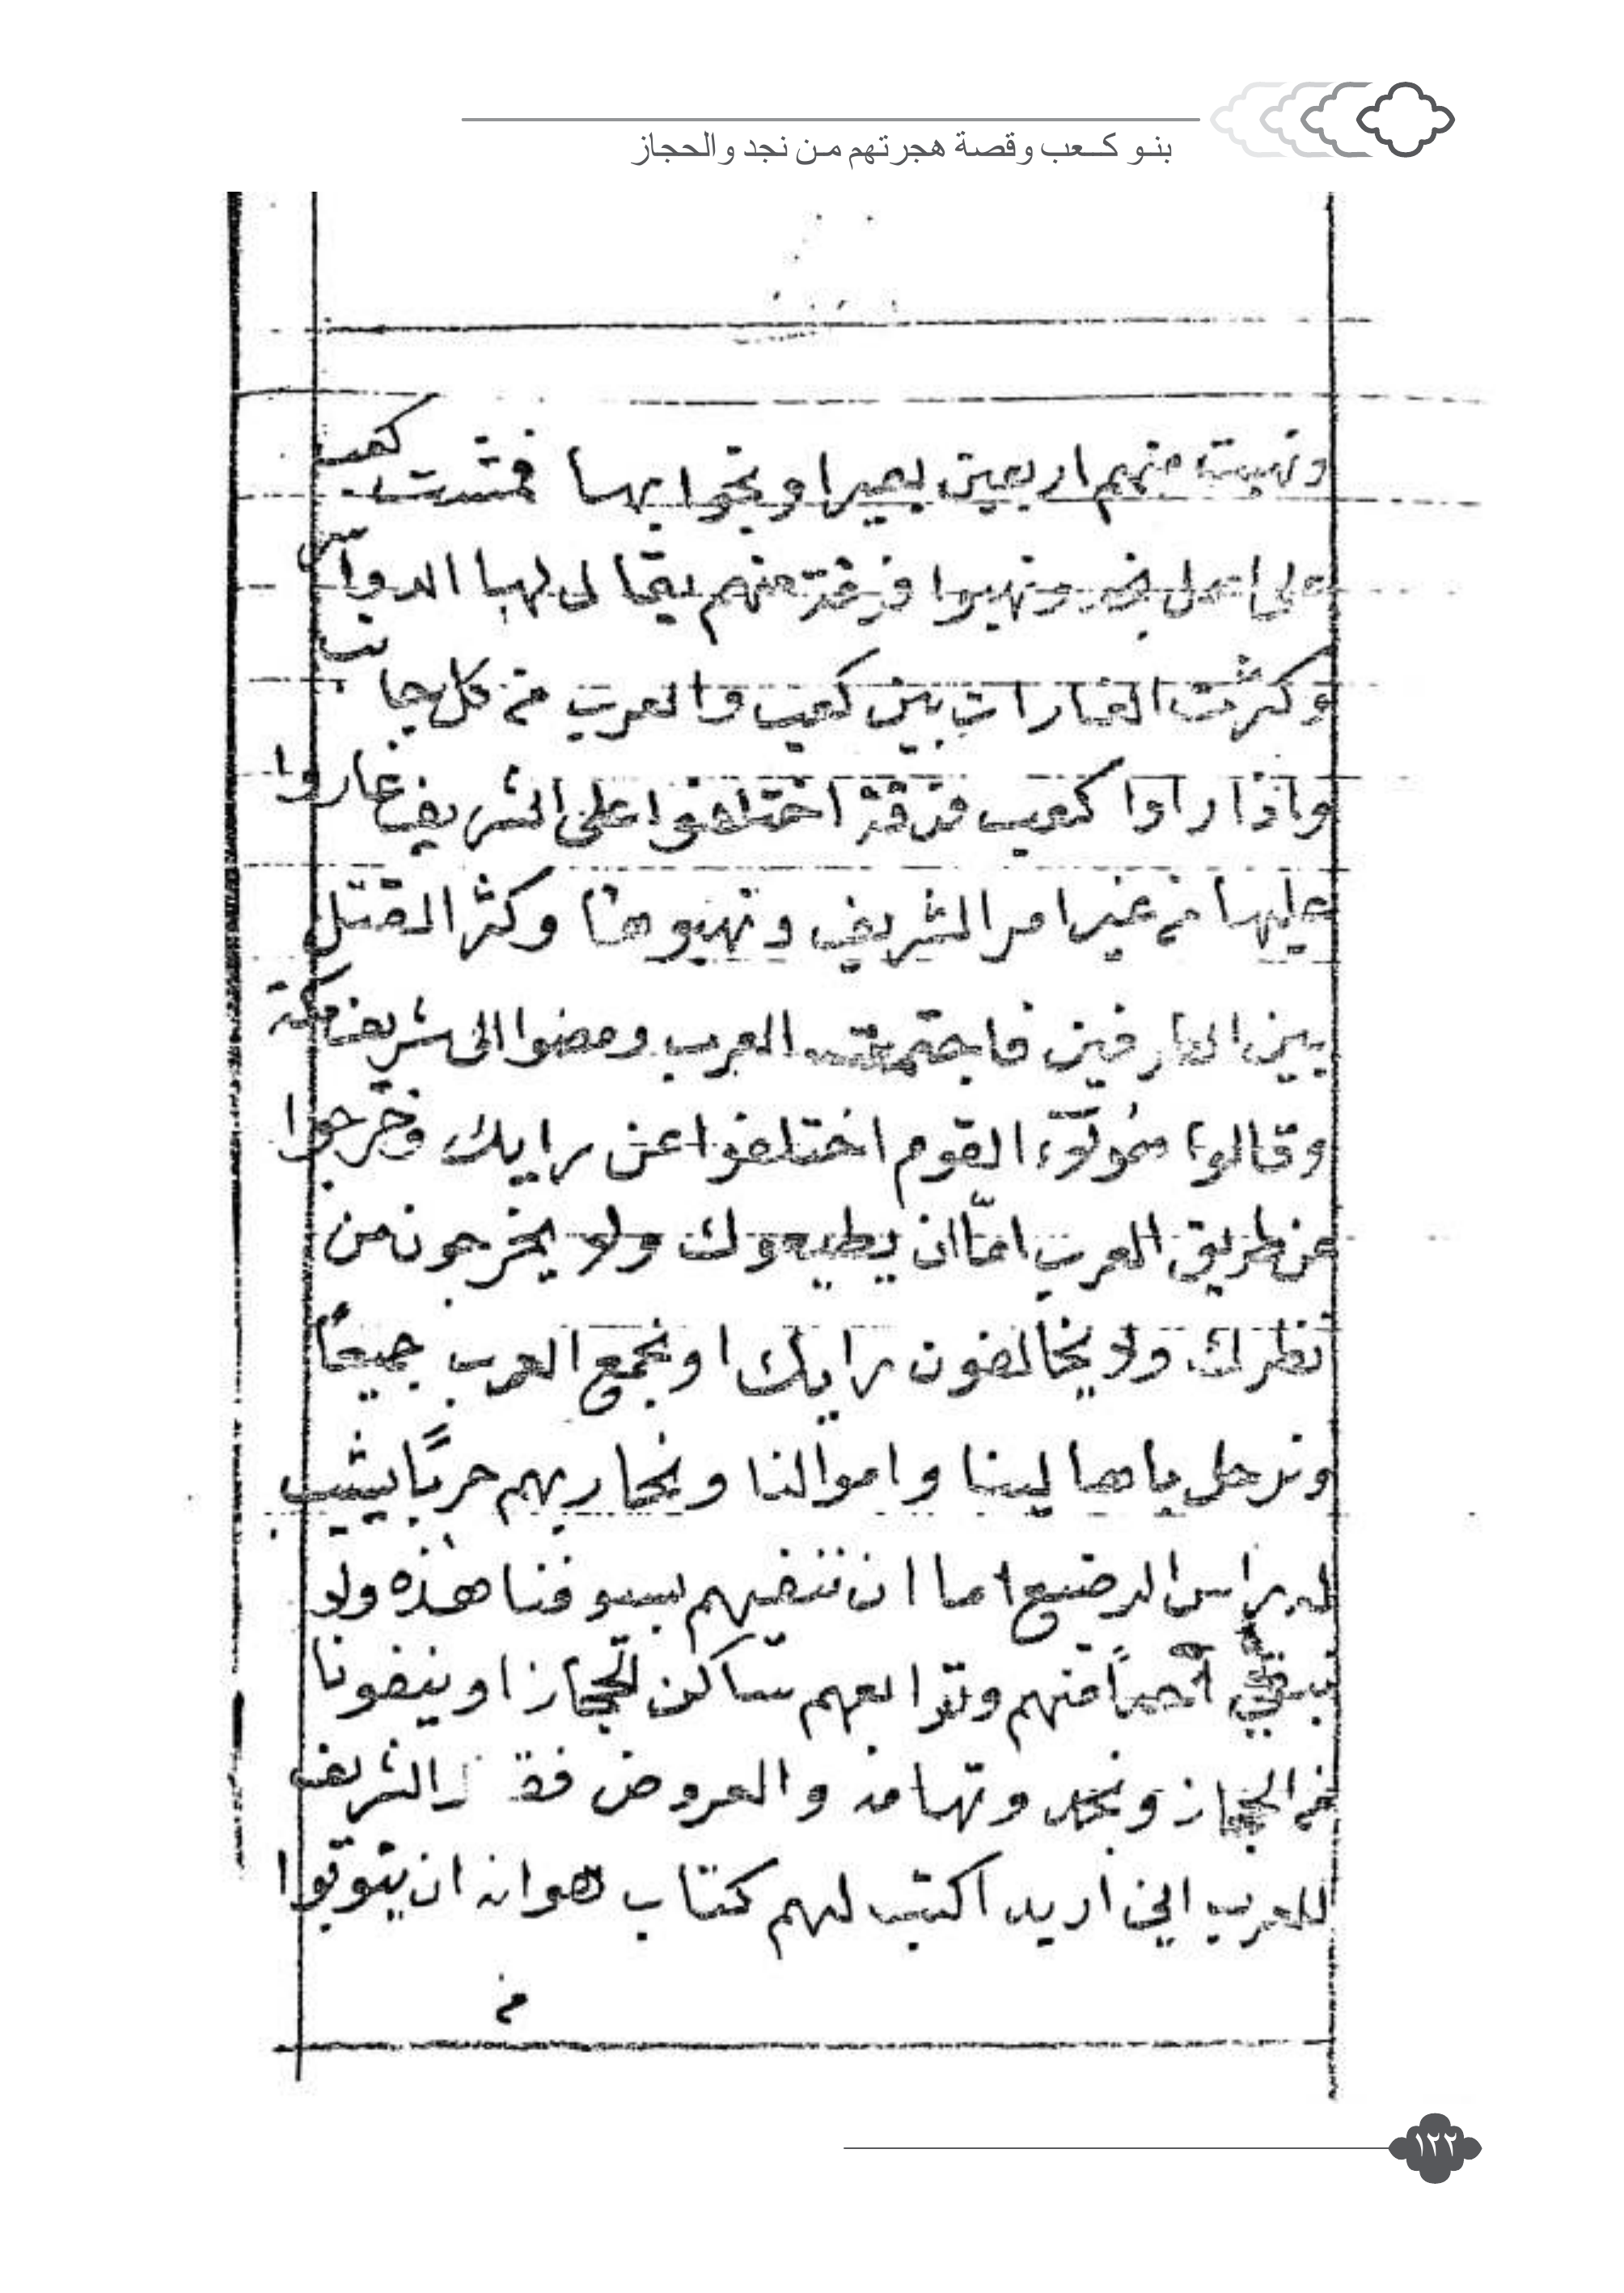 بنو كعب وقصة هجرتهم من نجد والحجاز
ونهبت منهم اربعين بعيرا ونجوا بها فمشت كعب
على اهل نجد ونهبوا فرقة منهم يقال لها الدواسر
وكثرت الغارات بين كعب والعرب من كل جانب
واذا راوا كعب فرقة اختلفوا على الشريف غاروا
عليها من غير امر الشريف ونهبوها وكثر القتل
بين الطرفين فاجتمعت العرب ومضوا الى شريف مكة
وقالوا هؤلاء القوم اختلفوا عن رايك وخرجوا
عن طريق العرب امّا ان يطيعوك ولا يخرجون من
نظرك ولا يخالفون رايك او نجمع العرب جميعًا
ونرحل باهالينا واموالنا ونحاربهم حربًا يشيب
له راس الرضيع اما ان ننفيهم بسيوفنا هذه ولا
نبقي احداً منهم وتوابعهم ساكن الحجاز او ينفونا
من الحجاز ونجد وتهامه والعروض فقال الشريف
للعرب اني اريد اكتب لهم كتاب هوانه ان يتوبوا
من
١٢٢